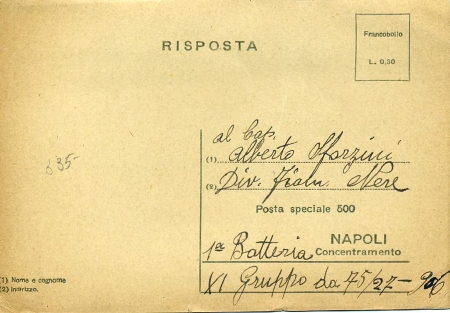 RISPOSTA
Francobollo
L. 0,30
835-
al Cap.
(1) Alberto Sforzini
(2) Div. Fiam. Nere
Posta speciale 500
1ª Batteria NAPOLI
Concentramento
XI Gruppo da 75/27 - 906
(1) Nome e cognome
(2) Indirizzo.